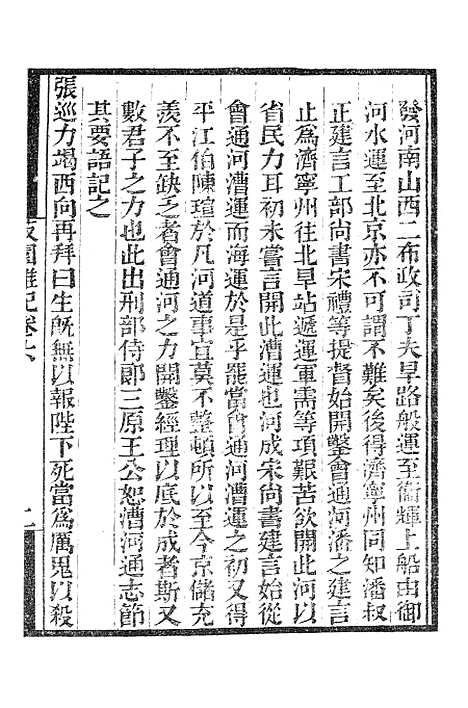 發河南山西二布政司丁夫旱路般運至衞輝上船由御
河水運至北京亦不可謂不難矣後得濟寧州同知潘叔
正建言工部尚書宋禮等提督始開鑿會通河潘之建言
止為濟寧州往北旱站遞運軍需等項艱苦欲開此河以
省民力耳初未嘗言開此漕運也河成宋尚書建言始從
會通河漕運而海運於是乎罷當會通河漕運之初又得
平江伯陳瑄於凡河道事宜莫不整頓所以至今京儲充
羨不至缺乏者會通河之力開鑿經理以底於成者斯又
數君子之力也此出刑部侍郎三原王公恕漕河通志節
其要語記之
張巡力竭西向再拜曰生旣無以報陛下死當為厲鬼以殺
菽園雜記卷